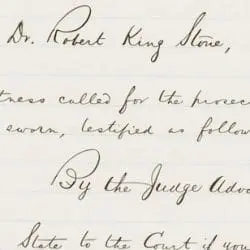 Dr. Robert King Stone,
tness called for the prosec
sworn, testified as follow
By the Judge Advo
State to the Court if you